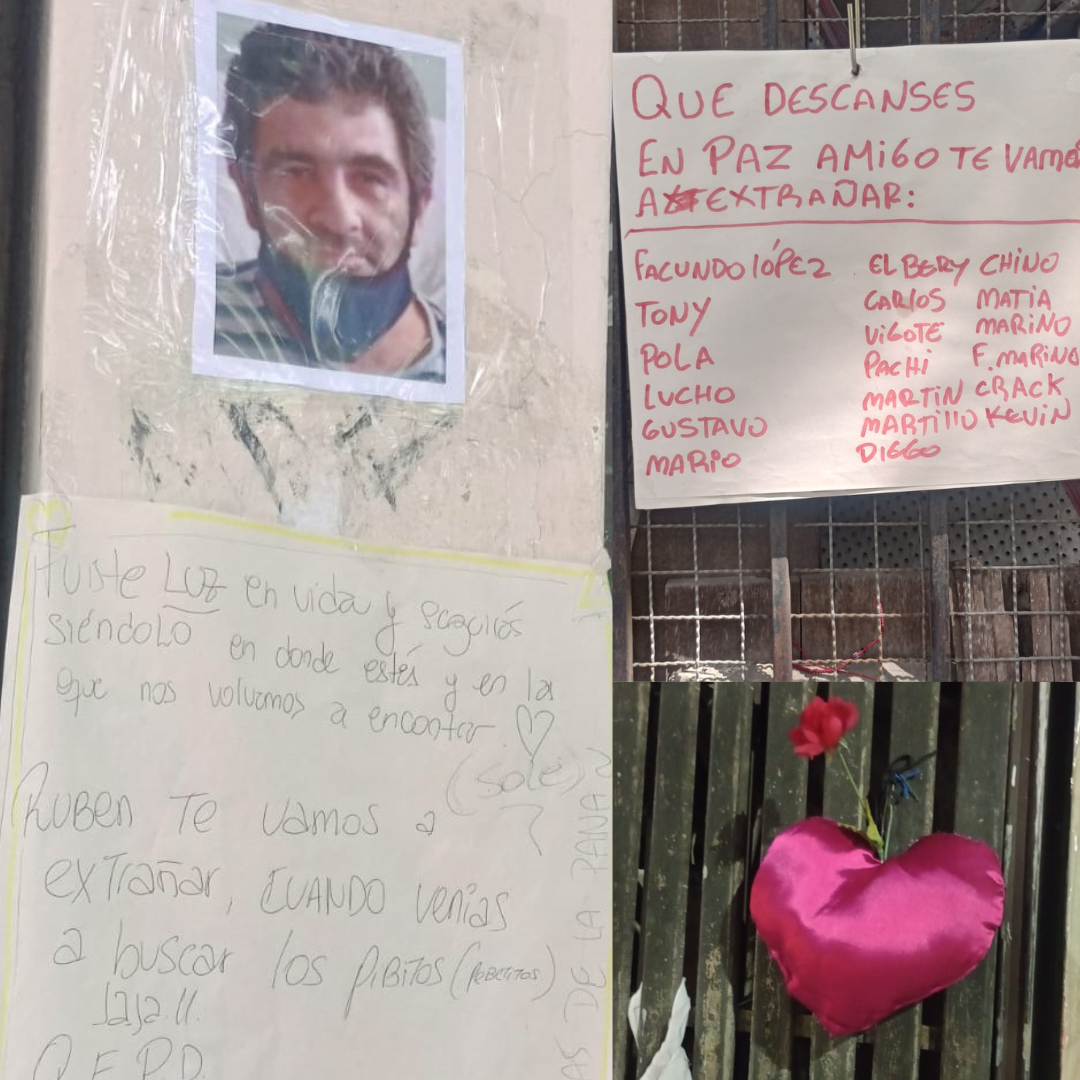 Fuiste Luz en vida y seguirás
siéndolo en donde estés y en la
que nos volvamos a encontar.
(Sole)
RUBEN TE vamos a
exTrañar, CUANDO venías
a buscar los PIBITOS (POBRECITOS)
JaJa!!
Q.E.P.D.
DE LA
QUE DESCANSES
EN PAZ AMIGO TE VAMOS
A EXTRAÑAR:
FACUNDO LÓPEZ EL BERY CHINO
TONY CARLOS MATIA
VIGOTE MARINO
POLA PACHI F. MARINO
LUCHO MARTIN CRACK
GUSTAVO MARTILLO KEVIN
MARIO DIEGO